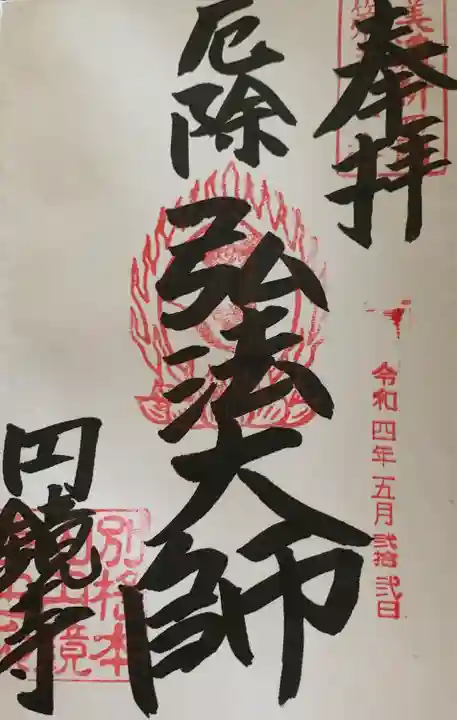 奉拝
令和四年五月弐拾弐日
厄除
弘法大師
円鏡寺